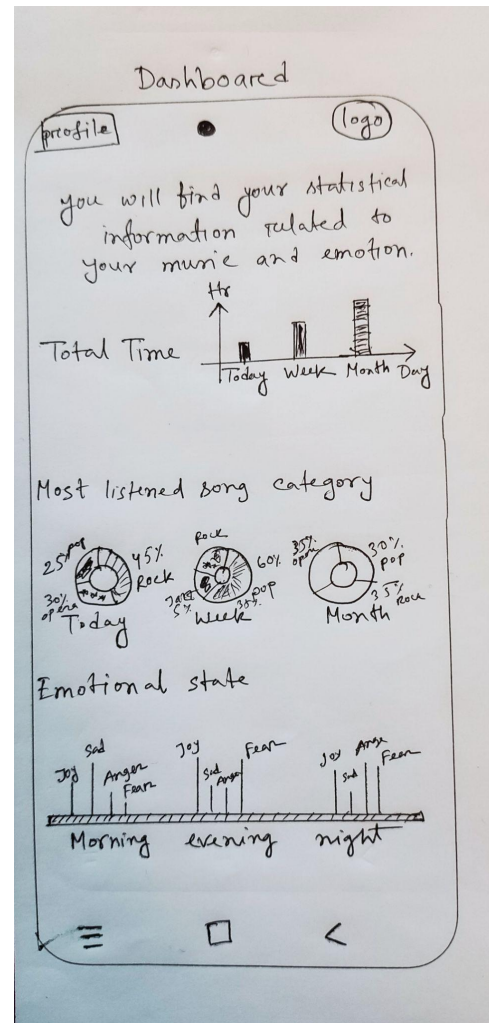 Dashboared
profile
logo
you will find your statistical
information related to
your music and emotion.
Hr
Total Time
Today Week Month Day
Most listened song category
25% pop
45% Rock
30% opera
Today
Rock
60% pop
5%
35%
Week
35% opera
30% pop
35% Rock
Month
Emotional state
Joy Sad Anger Fear
Joy Sad Anger Fear
Joy Sad Ange Fear
Morning evening night